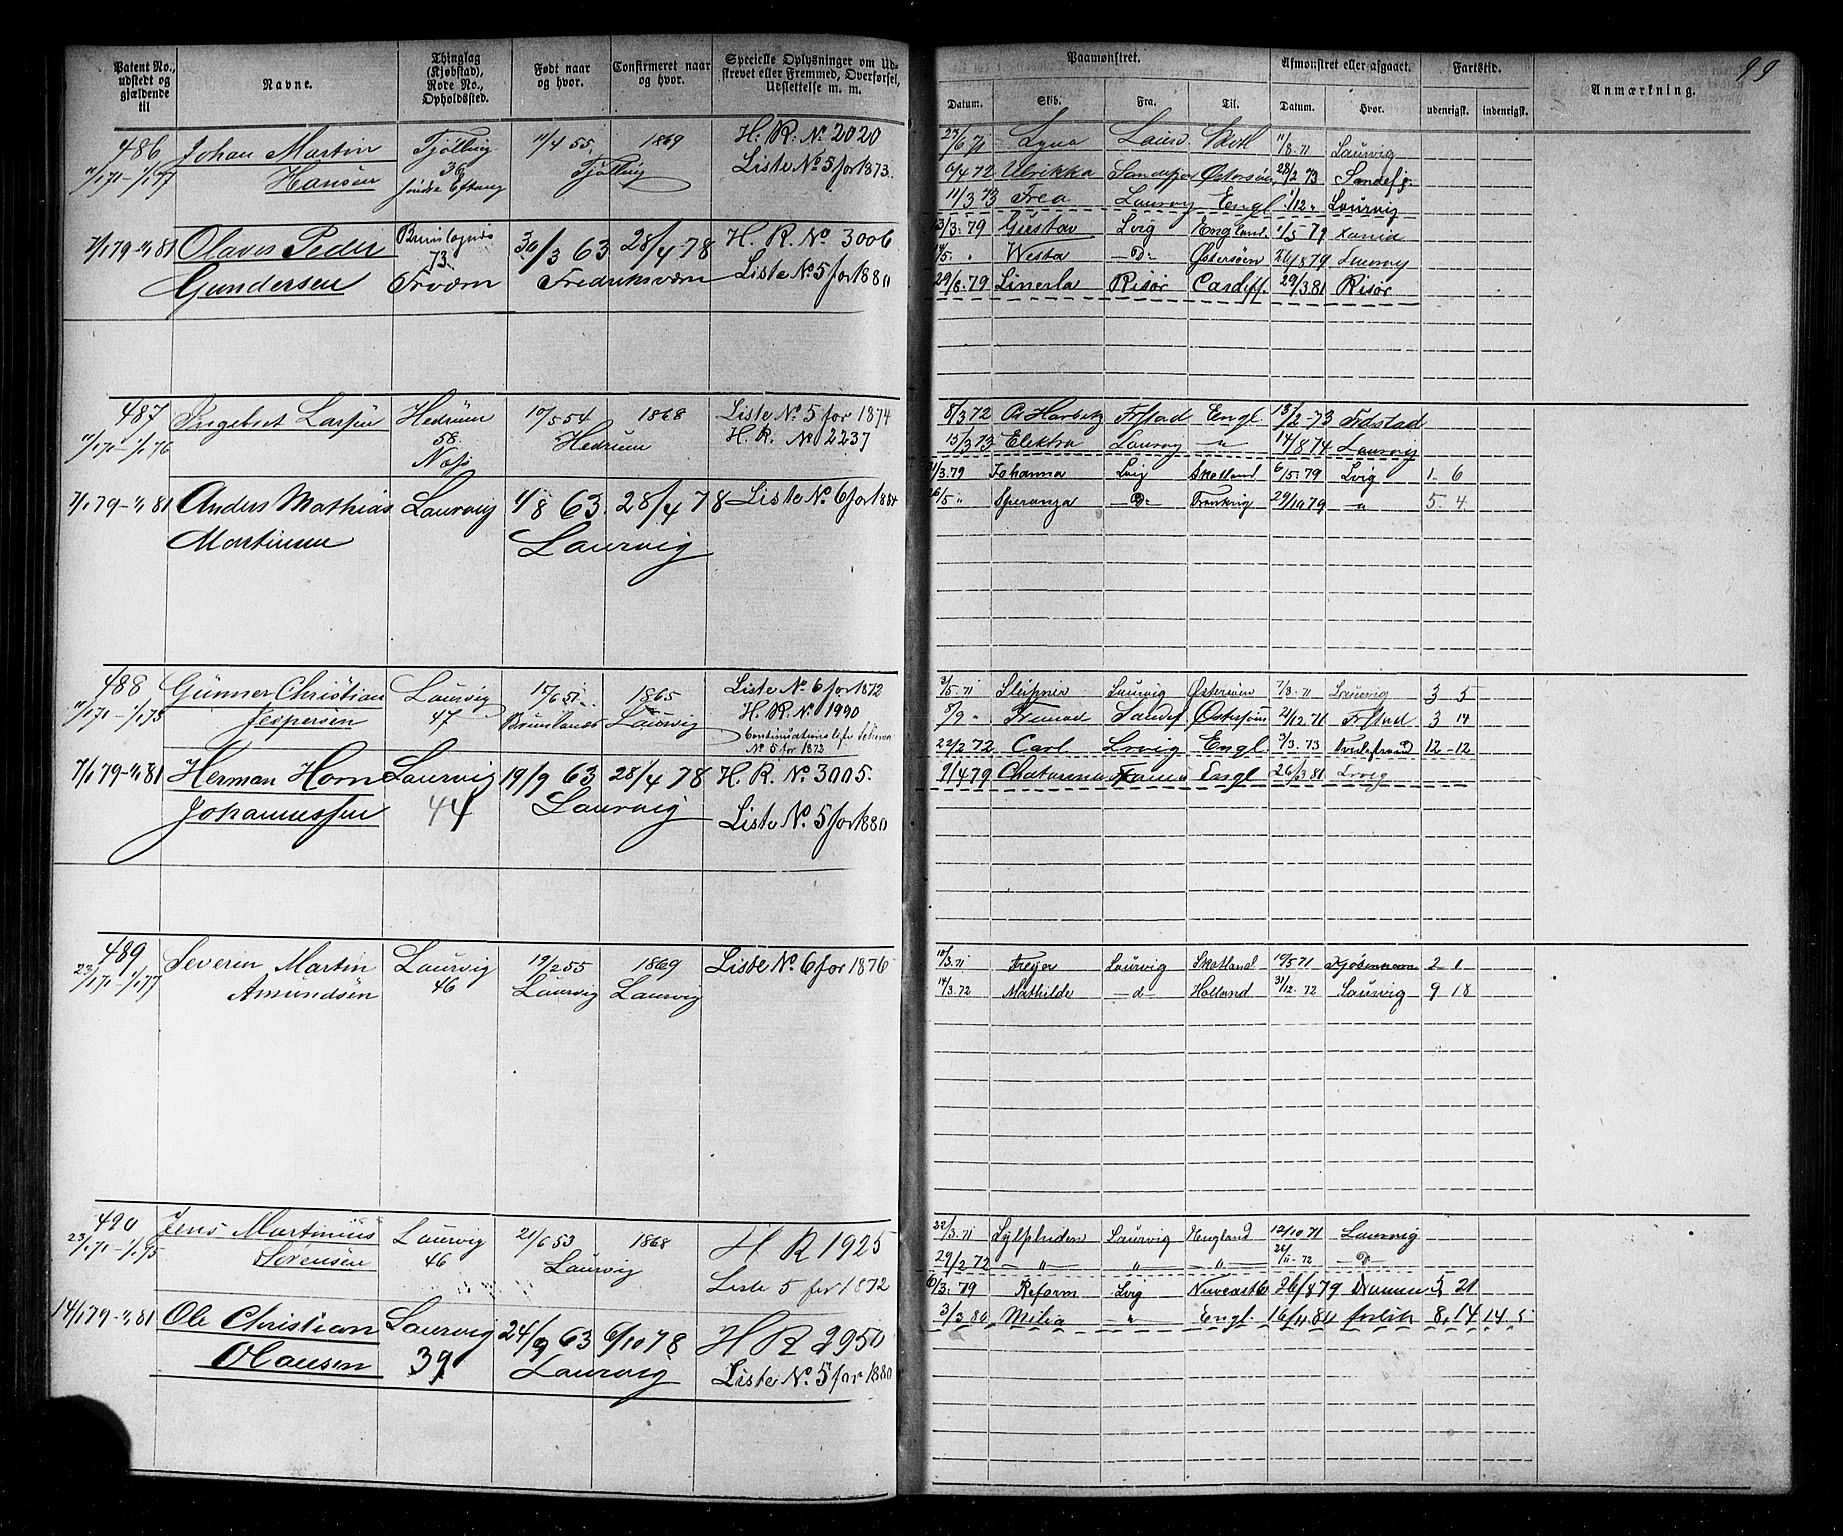 99
Patent No., udstedt og gjældende til
Navne.
Thinglag (Kjøbstad), Rode No., Opholdssted.
Født naar og hvor.
Confirmeret naar og hvor.
Specielle Oplysninger om Udskrevet eller Fremmed, Overførsel, Udslettelse m. m.
Paamønstret.
Afmønstret eller afgaaet.
Fartstid.
Anmærkning.
Datum. Skib. Fra. Til. Datum. Hvor. udenrigsk. indenrigsk.
486 Johan Martin Tjølling 11/4 55 1869 H. R. No 2020
11/1 71 - 1/1 77 Hansen 36 Tjølling Liste No 5 for 1873.
23/6 71 Lyna 11/8 71 Laurvig
6/4 72 Ulrikka Østersøen 28/2 73 Sandefj.
11/3 73 Frea Laurvig Engl. 1/12 " Laurvig
7/1 79 - 1/1 81 Olaves Peder 73 30/3 63 28/4 78 H. R. No 3006
Gundersen Fværn Fredriksværn Liste No 5 for 1880
13/3 79 Gustav Lvig England 1/5 79
14/5 " Westa - D - Østersøen
29/6 79 Linerla Risør Cardiff. 29/3 81 Risør
487 Ingebret Larsen Hedrum 10/5 54 1868 Liste No 5 for 1874
11/1 71 - 1/1 76 58. Hedrum H. R. No 2237
8/3 72 Frstad Engl. 13/2 73 Fdstad
15/3 73 Elektra Laurvig - " - 14/8 74 Laurvig
7/1 79 - 1/1 81 Anders Mathias Laurvig 1/8 63. 28/4 78 Liste No 6 for 1884
Martinsen Laurvig
11/3 79 Johanna Lvig Skotland 6/5 79 Lvig 1 - 6
26/5 " Speranza - D - Frankrig 29/10 79 " 5. 4
488 Gunner Christian Laurvig 15/6 51 1865 Liste No 6 for 1872
11/1 71 - 1/1 75 Jespersen 47 Brunlanes Laurvig H. R. No 1990
No 5 for 1873
3/5 71 Sleipner Laurvig Østersøen 7/3 71 Laurvig 3 5
8/9 " Fremad Sandef Østersøen 21/12 71 Frstad 3 14
22/2 72 Carl Lrvig Engl. 3/3 73 12 - 12
7/1 79 - 1/1 81 Herman Horn Laurvig 19/9 63 28/4 78 H. R. No 3005.
Johannessen 44 Laurvig Liste No 5 for 1880
9/4 79 Engl 26/3 81 Lrvig
489 Severin Martin Laurvig 19/2 55 1869 Liste No 6 for 1876
23/1 71 - 1/1 77 Amundsen 46 Laurvig Laurvig
10/3 71 Freyer Laurvig Skotland 10/5 71 2 1
14/3 72 Mathilde - d - Holland 31/12 72 Laurvig 9 18
490 Jens Martinius Laurvig 21/6 53 1868 H R 1925
23/1 71 - 1/1 75 Sørensen 46 Laurvig Liste 5 for 1872
22/3 71 Sylphiden Laurvig England 12/10 71 Laurvig
29/2 72 - " - " - " - 26/11 72 - D -
14/1 79 - 1/1 81 Ole Christian Laurvig 24/9 63 6/10 78 H R 2950
Olausen 39 Laurvig Liste No 5 for 1880
6/3 79 Reform Lvig 26/8 79 Drammen 5 21
3/3 80 Milia " Engl. 16/11 80 8. 14 14 5